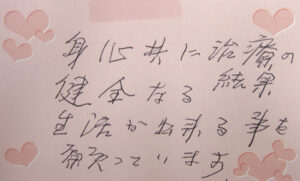 身心共に治療の
結果
健全なる
生活が出来る事を
願っています